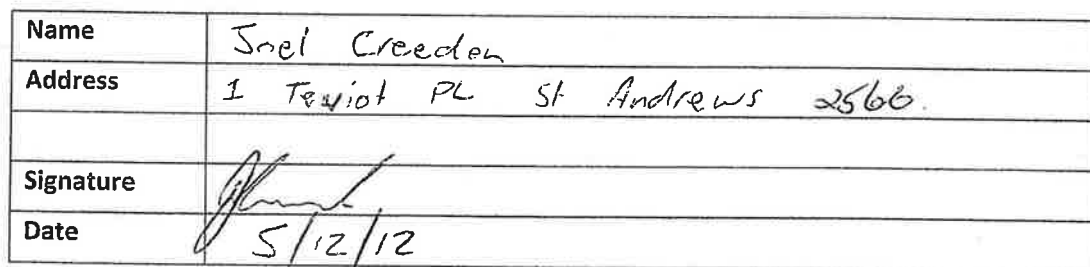 Name Joel Creeden
Address 1 Teviot PL St Andrews 2566.
Signature
Date 5/12/12